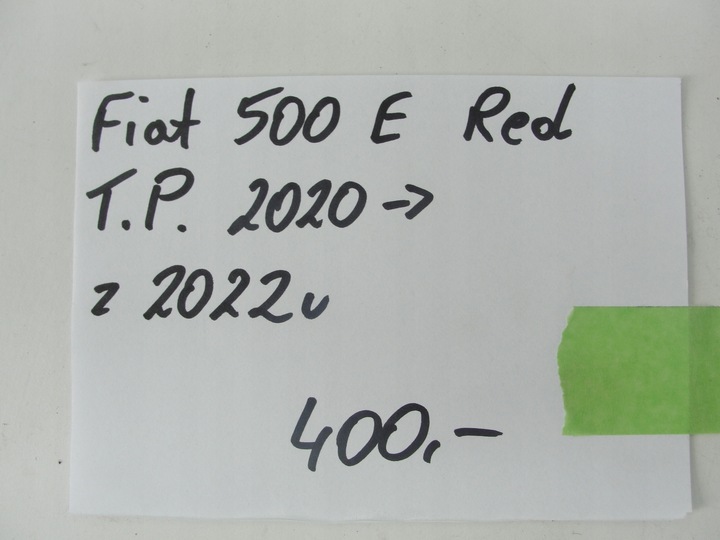 Fiat 500 E Red
T.P. 2020 →
z 2022r
400,-